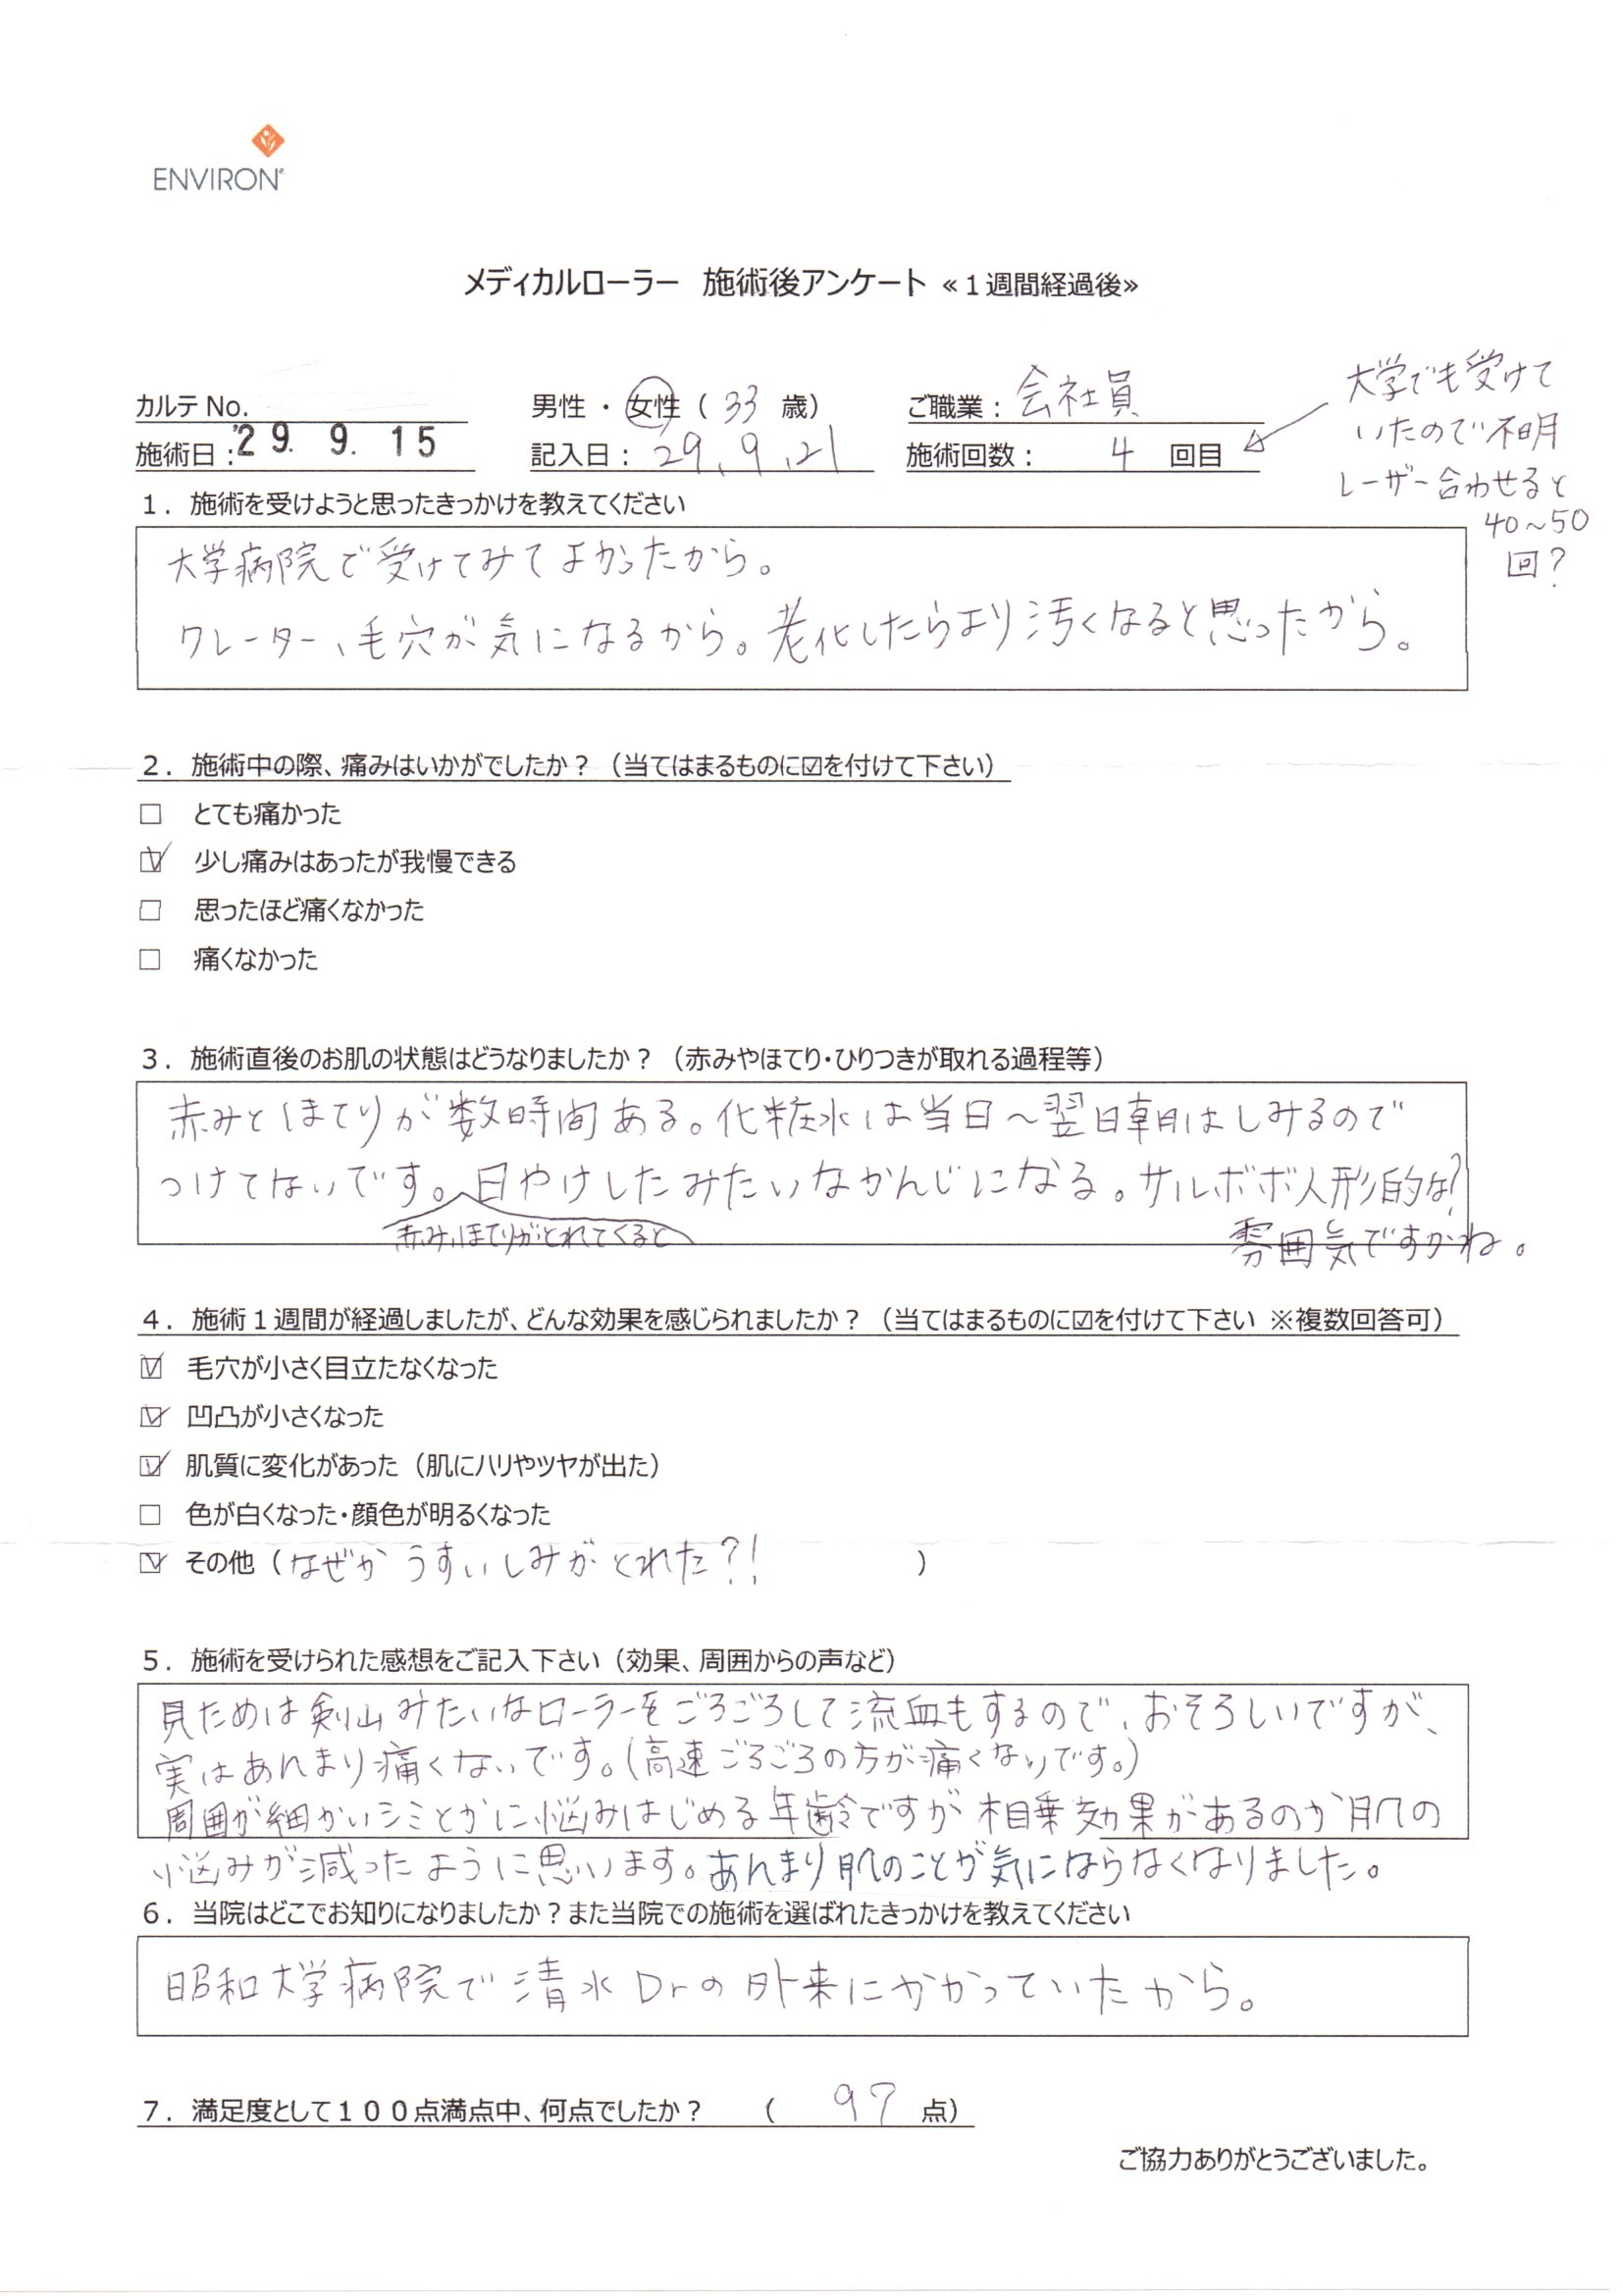 ENVIRON
メディカルローラー 施術後アンケート ≪1週間経過後≫
カルテ No.
男性 ・ 女性 ( 33 歳)
ご職業: 会社員
施術日: '29. 9. 15
記入日: 29. 9. 21
施術回数: 4 回目
大学でも受けて
いたので不明
レーザー合わせると
40~50
回?
1. 施術を受けようと思ったきっかけを教えてください
大学病院で受けてみてよかったから。
クレーター、毛穴が気になるから。老化したらより汚くなると思ったから。
2. 施術中の際、痛みはいかがでしたか?(当てはまるものに☑を付けて下さい)
☐ とても痛かった
☑ 少し痛みはあったが我慢できる
☐ 思ったほど痛くなかった
☐ 痛くなかった
3. 施術直後のお肌の状態はどうなりましたか?(赤みやほてり・ひりつきが取れる過程等)
赤みとほてりが数時間ある。化粧水は当日~翌日朝はしみるので
つけてないです。日やけしたみたいなかんじになる。サルボボ人形的な?
赤み、ほてりがとれてくると
雰囲気ですかね。
4. 施術1週間が経過しましたが、どんな効果を感じられましたか?(当てはまるものに☑を付けて下さい ※複数回答可)
☑ 毛穴が小さく目立たなくなった
☑ 凹凸が小さくなった
☑ 肌質に変化があった(肌にハリやツヤが出た)
☐ 色が白くなった・顔色が明るくなった
☑ その他(なぜかうすいしみがとれた?! )
5. 施術を受けられた感想をご記入下さい(効果、周囲からの声など)
見ためは剣山みたいなローラーをごろごろして流血もするので、おそろしいですが、
実はあんまり痛くないです。(高速ごろごろの方が痛くないです。)
周囲が細かいシミとかに悩みはじめる年齢ですが相乗効果があるのか肌の
悩みが減ったように思います。あんまり肌のことが気にならなくなりました。
6. 当院はどこでお知りになりましたか?また当院での施術を選ばれたきっかけを教えてください
昭和大学病院で清水Drの外来にかかっていたから。
7. 満足度として100点満点中、何点でしたか? ( 97 点)
ご協力ありがとうございました。